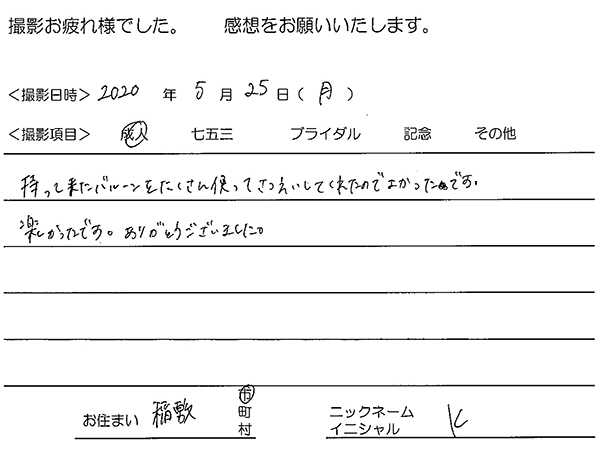 撮影お疲れ様でした。 感想をお願いいたします。
<撮影日時> 2020 年 5 月 25 日 ( 月 )
<撮影項目> 成人 七五三 ブライダル 記念 その他
持って来たバルーンをたくさん使ってさつえいしてくれたのでよかったです。
楽しかったです。ありがとうございました。
お住まい 稲敷 市 町 村 ニックネーム イニシャル K